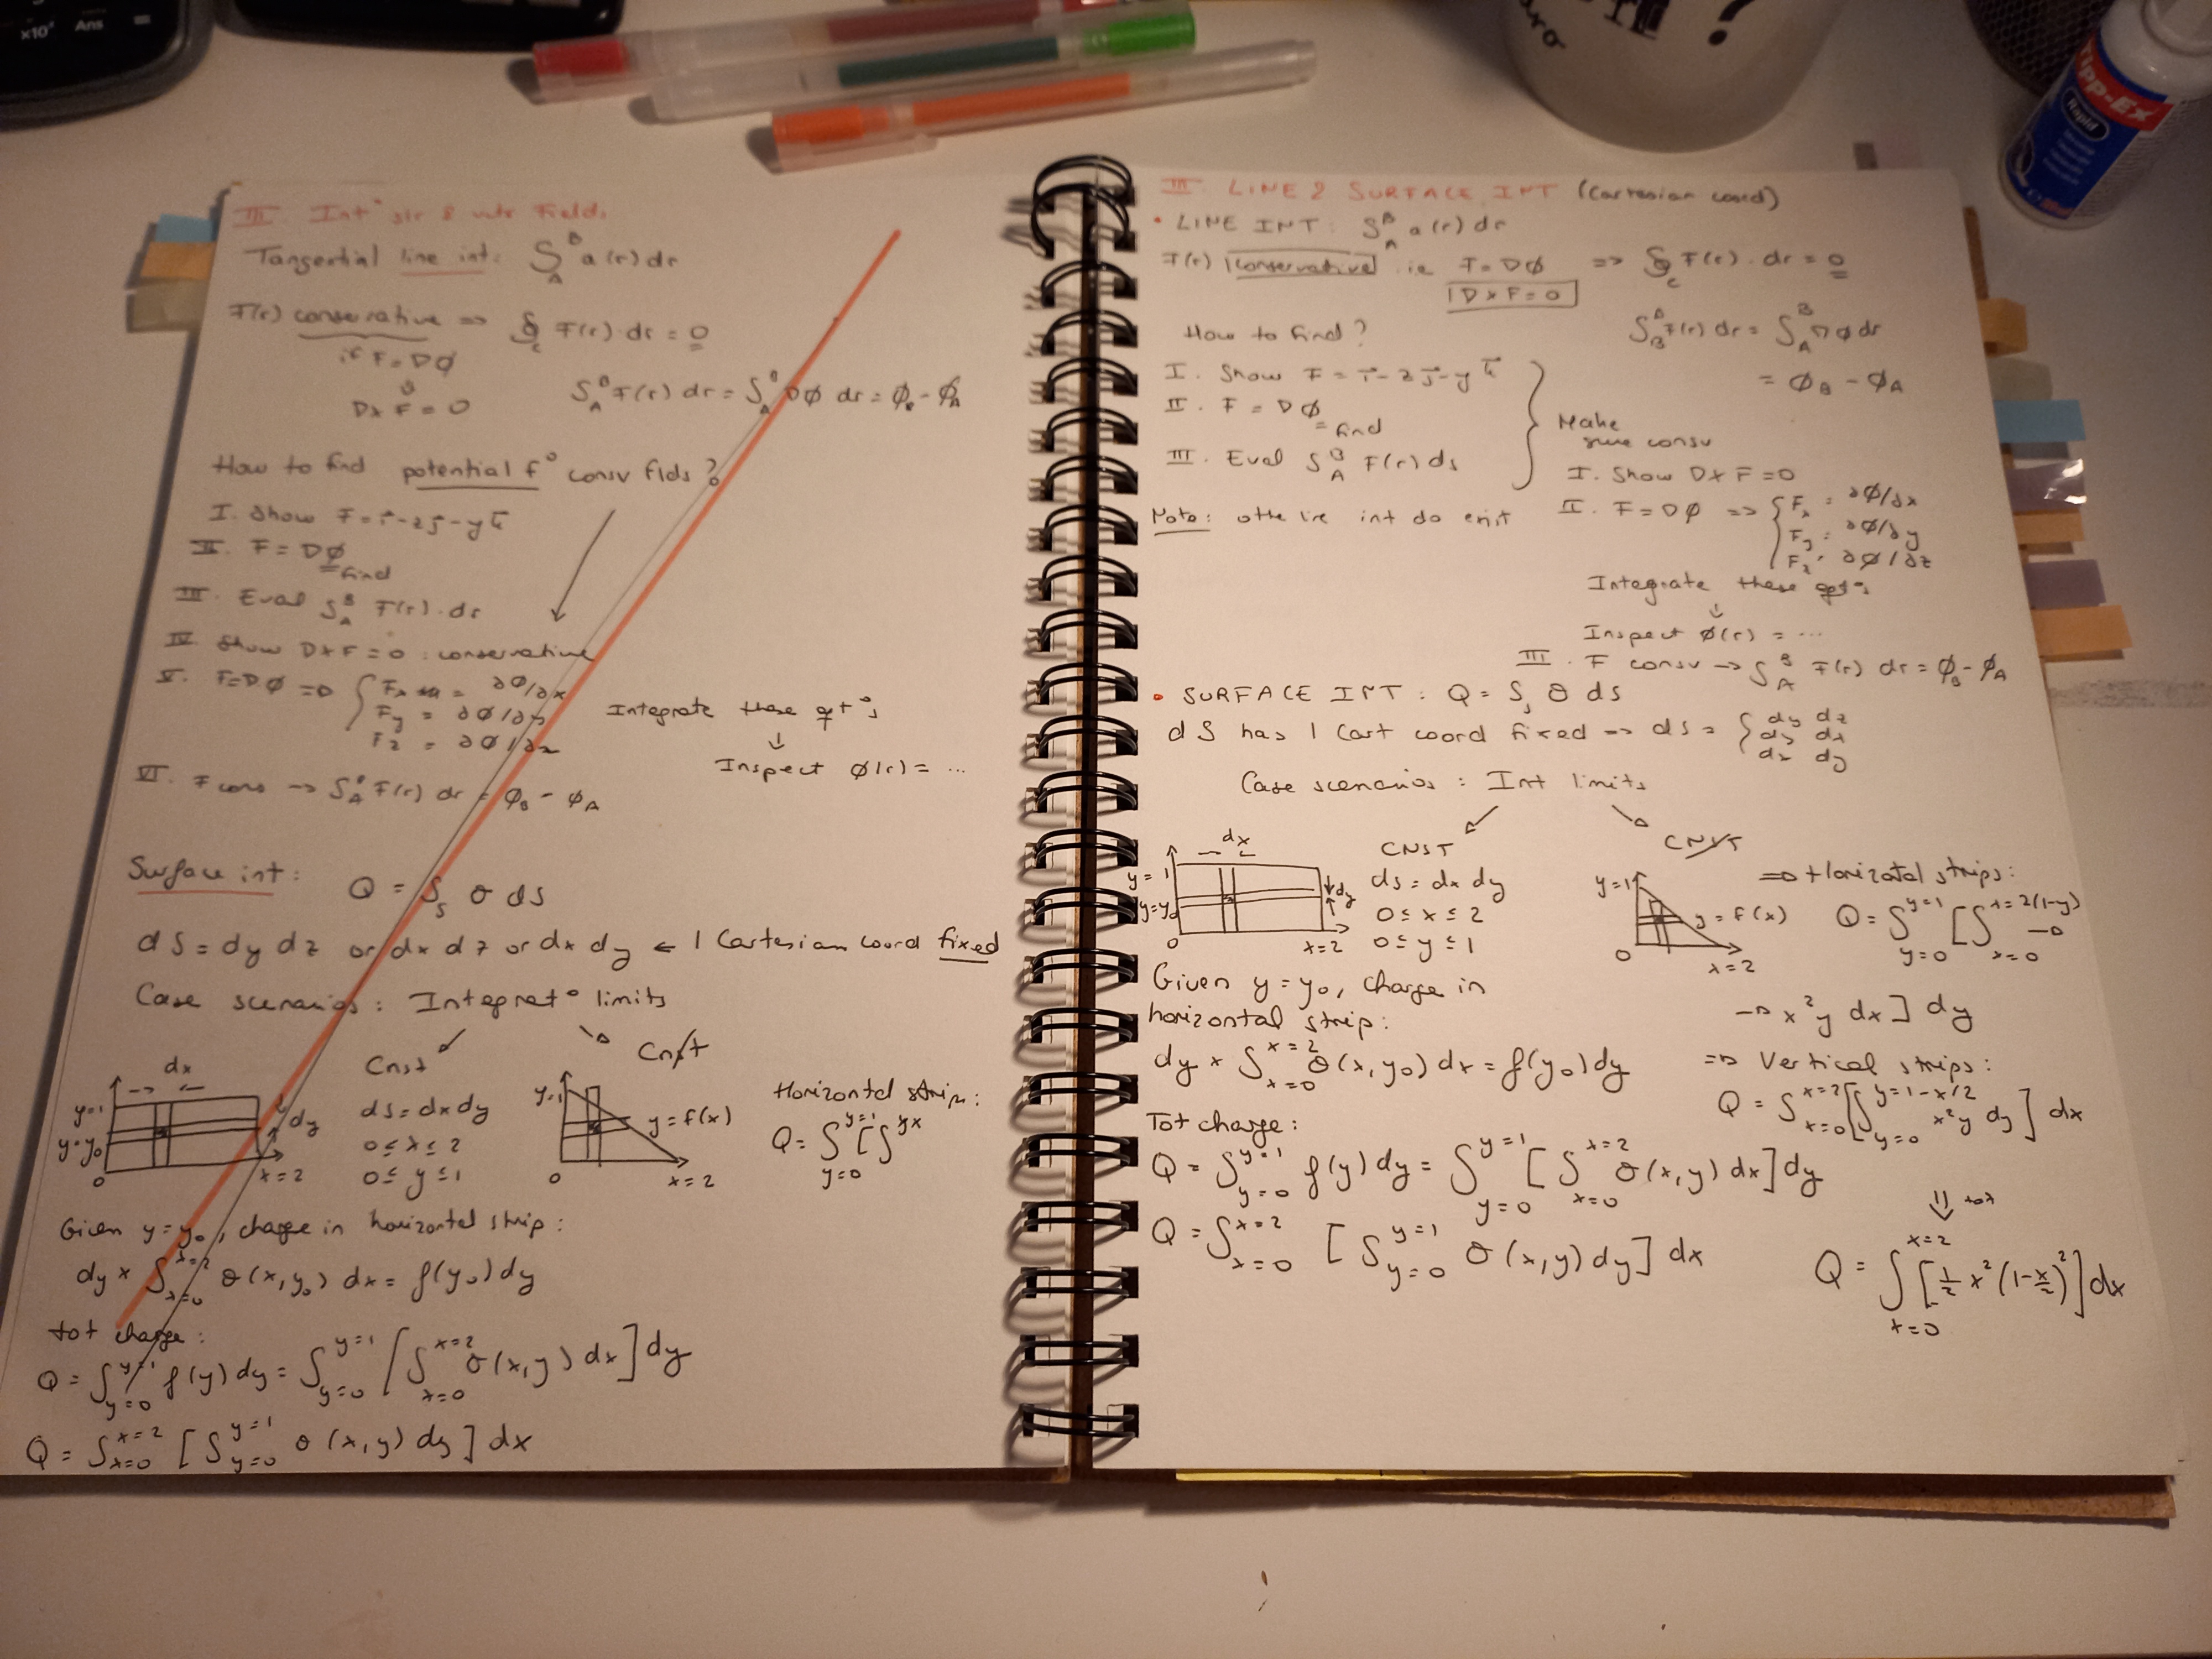 III. Int° sir & vctr field.
Tangential line int: ∫_A^B a(r) dr
F(r) conservative => ∮_c F(r) dr = 0
if F = ∇∅
∇×F = 0
∫_A^B F(r) dr = ∫_A^B ∇∅ dr = ∅_B - ∅_A
How to find potential f° consv flds?
I. Show F = i - 2j - yk
II. F = ∇∅
= find
III. Eval ∫_A^B F(r) · dr
IV. Show ∇×F = 0 : conservative
V. F = ∇∅ => { Fx = ∂∅/∂x
Fy = ∂∅/∂y
Fz = ∂∅/∂z
Integrate these qt°s
↓
Inspect ∅(r) = ...
VI. F cons → ∫_A^B F(r) dr = ∅_B - ∅_A
Surface int: Q = ∫_S σ dS
dS = dy dz or dx dz or dx dy ← 1 Cartesian coord fixed
Case scenarios: Integrat° limits
Cnst
Cnst
dx
y=1
y=y0
0
x=2
dy
ds = dx dy
0 ≤ x ≤ 2
0 ≤ y ≤ 1
y=1
0
y = f(x)
x=2
Horizontal strips:
Q = ∫_{y=0}^{y=1} [ ∫ yx
Given y = y0, charge in horizontal strip:
dy × ∫_{x=0}^{x=2} σ(x, y0) dx = f(y0) dy
tot charge:
Q = ∫_{y=0}^{y=1} f(y) dy = ∫_{y=0}^{y=1} [ ∫_{x=0}^{x=2} σ(x, y) dx ] dy
Q = ∫_{x=0}^{x=2} [ ∫_{y=0}^{y=1} σ(x, y) dy ] dx
III. LINE & SURFACE INT (Cartesian coord)
• LINE INT: ∫_A^B a(r) dr
F(r) conservative ie F = ∇∅ => ∮_c F(r) · dr = 0
∇×F = 0
∫_B^A F(r) dr = ∫_A^B ∇∅ dr
= ∅_B - ∅_A
How to find?
I. Show F = i - 2j - yk
II. F = ∇∅
= find
III. Eval ∫_A^B F(r) ds
Make sure consv
I. Show ∇×F = 0
II. F = ∇∅ => { Fx = ∂∅/∂x
Fy = ∂∅/∂y
Fz = ∂∅/∂z
Note: othe line int do exist
Integrate these qt°s
↓
Inspect ∅(r) = ...
III. F consv → ∫_A^B F(r) dr = ∅_B - ∅_A
• SURFACE INT: Q = ∫_S σ ds
dS has 1 Cart coord fixed → ds = { dy dz
dy dz
dx dy
Case scenarios: Int limits
CNST
CNST
dx
y=1
y=y0
0
x=2
dy
ds = dx dy
0 ≤ x ≤ 2
0 ≤ y ≤ 1
y=1
0
y = f(x)
x=2
Given y = y0, charge in
horizontal strip:
dy × ∫_{x=0}^{x=2} σ(x, y0) dx = f(y0) dy
Tot charge:
Q = ∫_{y=0}^{y=1} f(y) dy = ∫_{y=0}^{y=1} [ ∫_{x=0}^{x=2} σ(x, y) dx ] dy
Q = ∫_{x=0}^{x=2} [ ∫_{y=0}^{y=1} σ(x, y) dy ] dx
⇒ Horizotal strips:
Q = ∫_{y=0}^{y=1} [ ∫_{x=0}^{x=2(1-y)} →
→ x²y dx ] dy
⇒ Vertical strips:
Q = ∫_{x=0}^{x=2} [ ∫_{y=0}^{y=1-x/2} x²y dy ] dx
⇓ tot
Q = ∫_{x=0}^{x=2} [ ½ x² (1 - x/2)² ] dx
x10ˣ
Ans
=
Tipp-Ex
Rapid